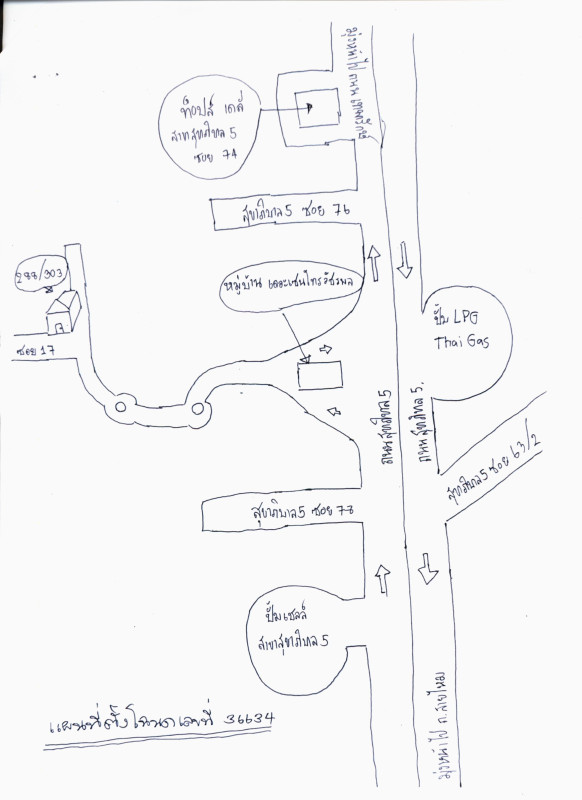 มุ่งหน้าไป ถนน
ท็อปส์ เดลี่
สาขาสุขาภิบาล 5
ซอย 74
สุขาภิบาล 5 ซอย 76
288/303
หมู่บ้าน เดอะเซนโทรวัชรพล
ปั้ม LPG
Thai Gas
ซอย 17
ถนนสุขาภิบาล 5
ถนนสุขาภิบาล 5
สุขาภิบาล 5 ซอย 63/2
สุขาภิบาล 5 ซอย 78
ปั้มเชลล์
สาขาสุขาภิบาล 5
มุ่งหน้าไป ถ.สายไหม
แผนที่ตั้งโฉนดเลขที่ 36634